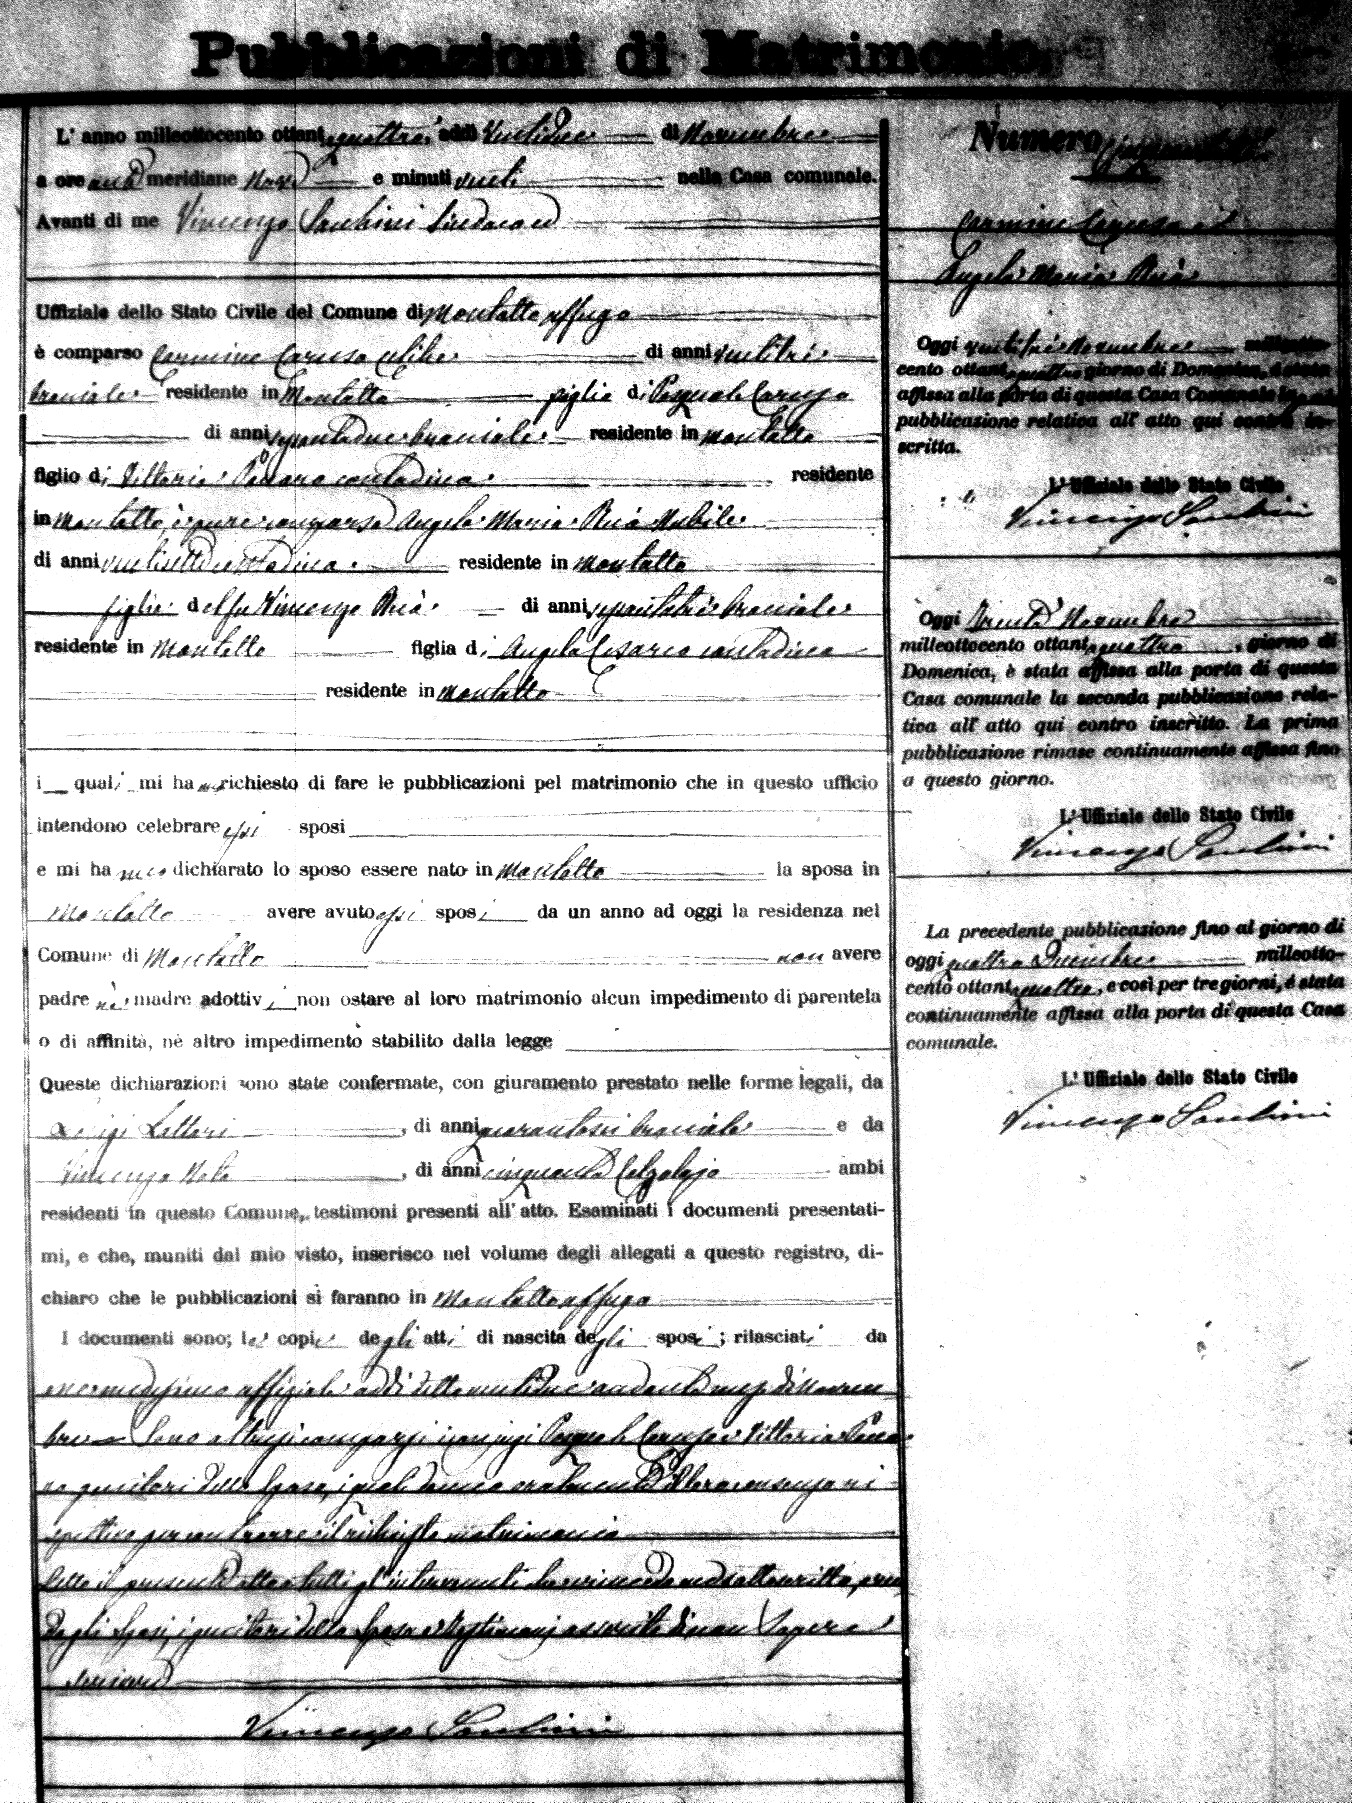 Pubblicazioni di Matrimonio.
L' anno milleottocento ottantaquattro, addì ventidue di Novembre
a ore anti meridiane nove e minuti venti nella Casa comunale.
Avanti di me Vincenzo Sindaco ed
Uffiziale dello Stato Civile del Comune di Montalto Uffugo
è comparso Carmine Caruso celibe di anni ventitrè
bracciale residente in Montalto figlio di Pasquale Caruso
di anni bracciale residente in Montalto
figlio di Vittoria contadina residente
in Montalto è pure comparsa Angela Maria Nubile
di anni contadina residente in Montalto
figlia del fu Vincenzo di anni bracciale
residente in Montalto figlia di Angela Cesareo contadina
residente in Montalto
i quali mi hanno richiesto di fare le pubblicazioni pel matrimonio che in questo ufficio
intendono celebrare essi sposi
e mi hanno dichiarato lo sposo essere nato in Montalto la sposa in
Montalto avere avuto essi sposi da un anno ad oggi la residenza nel
Comune di Montalto non avere
padre nè madre adottivi non ostare al loro matrimonio alcun impedimento di parentela
o di affinità, nè altro impedimento stabilito dalla legge
Queste dichiarazioni sono state confermate, con giuramento prestato nelle forme legali, da
Luigi Letteri, di anni quarantasei bracciale e da
Vincenzo, di anni cinquanta Calzolajo ambi
residenti in questo Comune, testimoni presenti all' atto. Esaminati i documenti presentati-
mi, e che, muniti dal mio visto, inserisco nel volume degli allegati a questo registro, di-
chiaro che le pubblicazioni si faranno in Montalto Uffugo
I documenti sono; le copie degli atti di nascita degli sposi; rilasciati da
me medesimo uffiziale addì detto ventidue andante mese di Novem
bre Sono altresì comparsi i coniugi Pasquale Caruso e Vittoria
genitori dello Sposo, i quali danno oralmente il loro consenso ri
spettivo per contrarre il richiesto matrimonio
Letto il presente atto a tutti gl'intervenuti
Dagli Sposi, i genitori dello Sposo e testimoni asserito di non sapere
scrivere
Vincenzo
Numero
Carmine Caruso ed
Angela Maria
Oggi ventitrè Novembre milleotto-
cento ottantaquattro giorno di Domenica, è stata
affissa alla porta di questa Casa Comunale la
pubblicazione relativa all' atto qui contro in-
scritta.
L' Uffiziale dello Stato Civile
Vincenzo
Oggi Trenta Novembre
milleottocento ottantaquattro, giorno di
Domenica, è stata affissa alla porta di questa
Casa comunale la seconda pubblicazione rela-
tiva all' atto qui contro inscritto. La prima
pubblicazione rimase continuamente affissa fino
a questo giorno.
L' Uffiziale dello Stato Civile
Vincenzo
La precedente pubblicazione fino al giorno di
oggi quattro Dicembre milleotto-
cento ottantaquattro, e così per tre giorni, è stata
continuamente affissa alla porta di questa Casa
comunale.
L' Uffiziale dello Stato Civile
Vincenzo